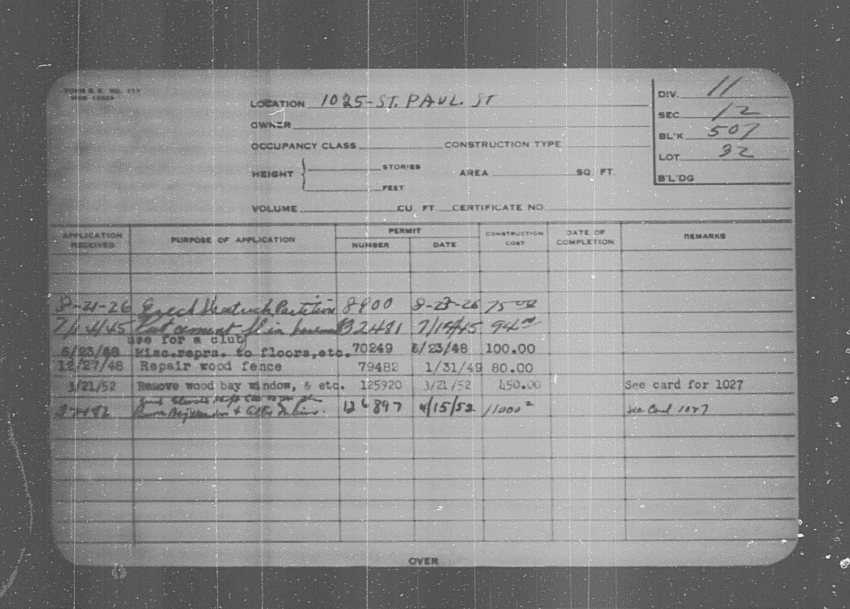 FORM B. E. NO. 117
LOCATION 1025-ST. PAUL. ST
OWNER
OCCUPANCY CLASS CONSTRUCTION TYPE
HEIGHT STORIES FEET AREA SQ. FT.
VOLUME CU. FT. CERTIFICATE NO.
DIV. 11
SEC 12
BL'K 507
LOT 32
B'L'DG
APPLICATION RECEIVED PURPOSE OF APPLICATION PERMIT NUMBER DATE CONSTRUCTION COST DATE OF COMPLETION REMARKS
8-21-26 Erect Partition 8900 8-23-26 75.00
7/14/45 Put cement in 32481 7/14/45 94.00
use for a club
6/23/48 Misc.reprs. to floors,etc. 70249 6/23/48 100.00
12/27/48 Repair wood fence 79482 1/31/49 80.00
3/21/52 Remove wood bay window, & etc. 125920 3/21/52 450.00 See card for 1027
126897 4/15/52 11000 See Card 1027
OVER